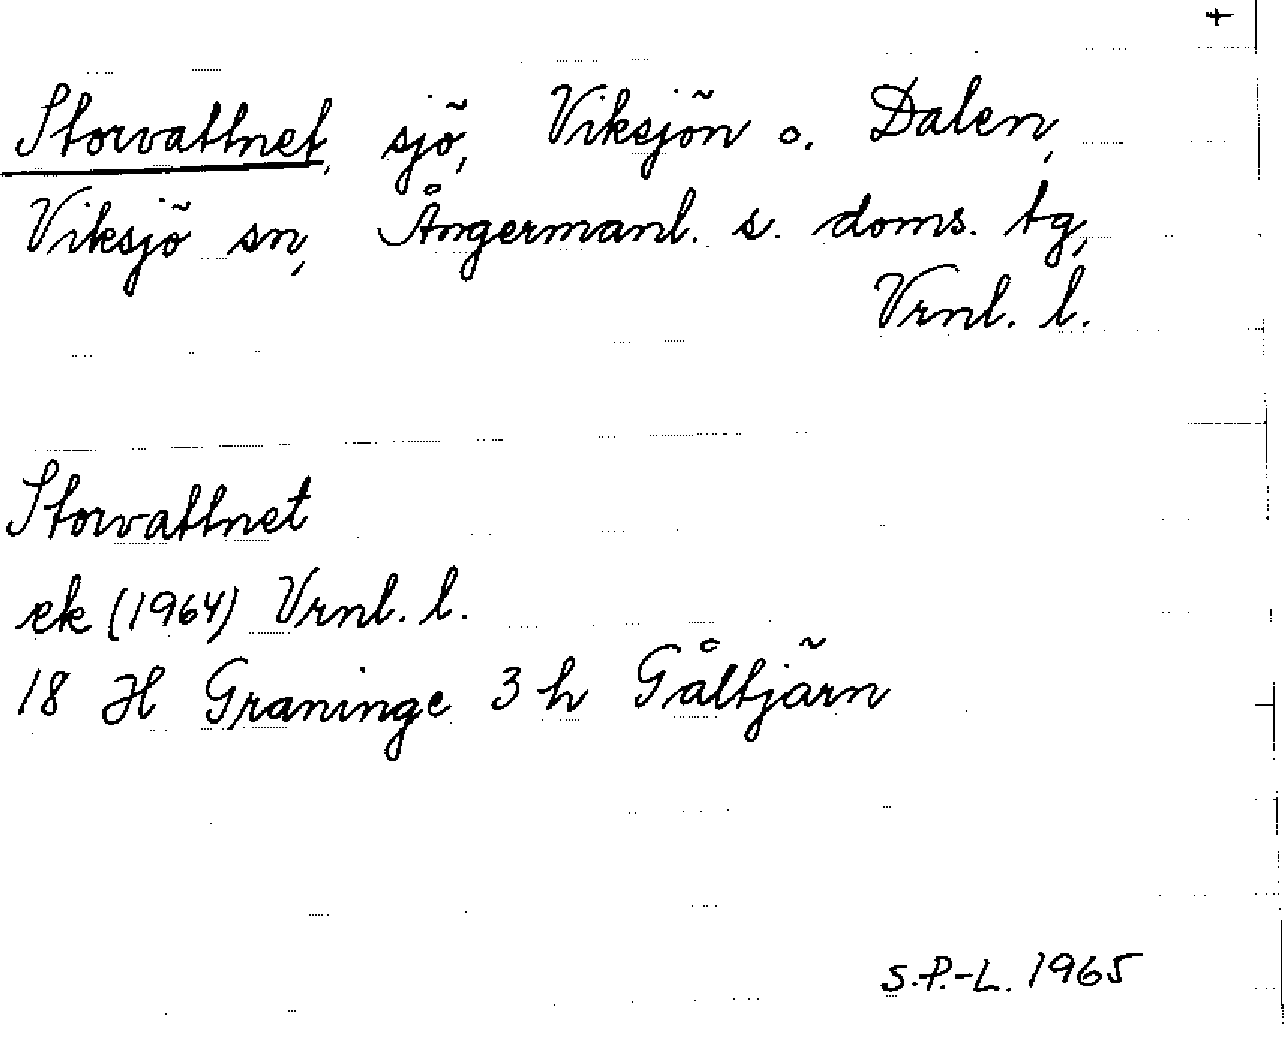 Storvattnet, sjö, Viksjön o. Dalen,
Viksjö sn, Ångermanl. s. doms. tg,
Vrnl. l.
Storvattnet
ek (1964) Vrnl. l.
18 H Graninge 3 h Gåltjärn
S.P.-L. 1965